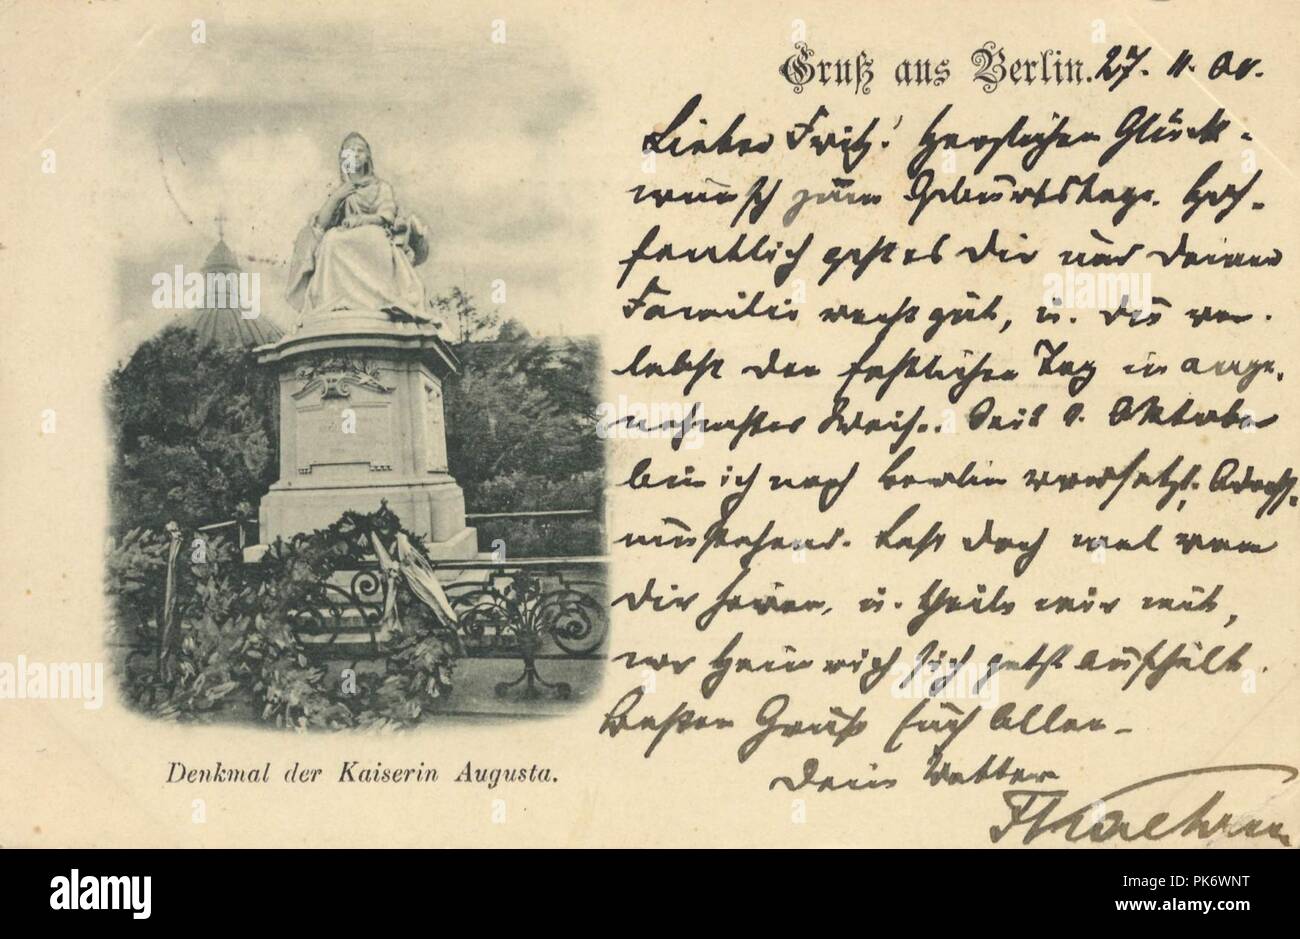 Gruß aus Berlin. 27. 11. 00.
Lieber Fritz! Herzlichen Glück-
wunsch zum Geburtstage. Hof-
fentlich geht es Dir und Deiner
Familie recht gut, u. Du ver-
lebst den festlichen Tag in ange-
nehmster Weise. Seit 1. Oktober
bin ich nach Berlin versetzt, Adresse
umstehend. Laß doch mal von
Dir hören, u. theile mir mit,
wo Heinrich sich jetzt aufhält.
Besten Gruß Euch Allen.
Dein Vetter
Denkmal der Kaiserin Augusta.
alamy
Image ID: PK6WNT
www.alamy.com